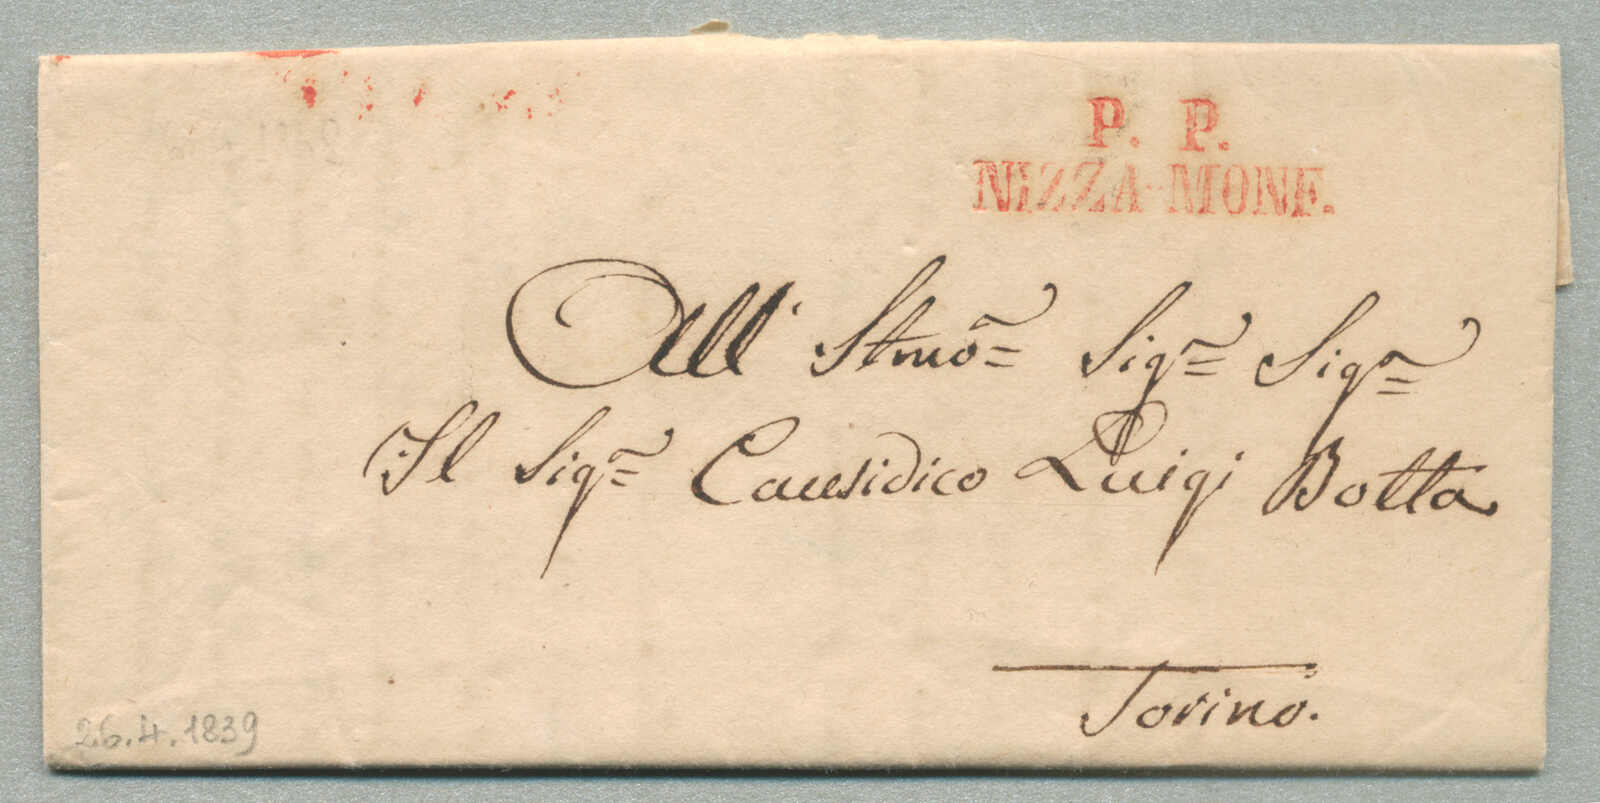 P. P.
NIZZA MONF.
All' Stmo Sigr Sigr
Il Sigr Causidico Luigi Botta
Torino.
26.4.1839